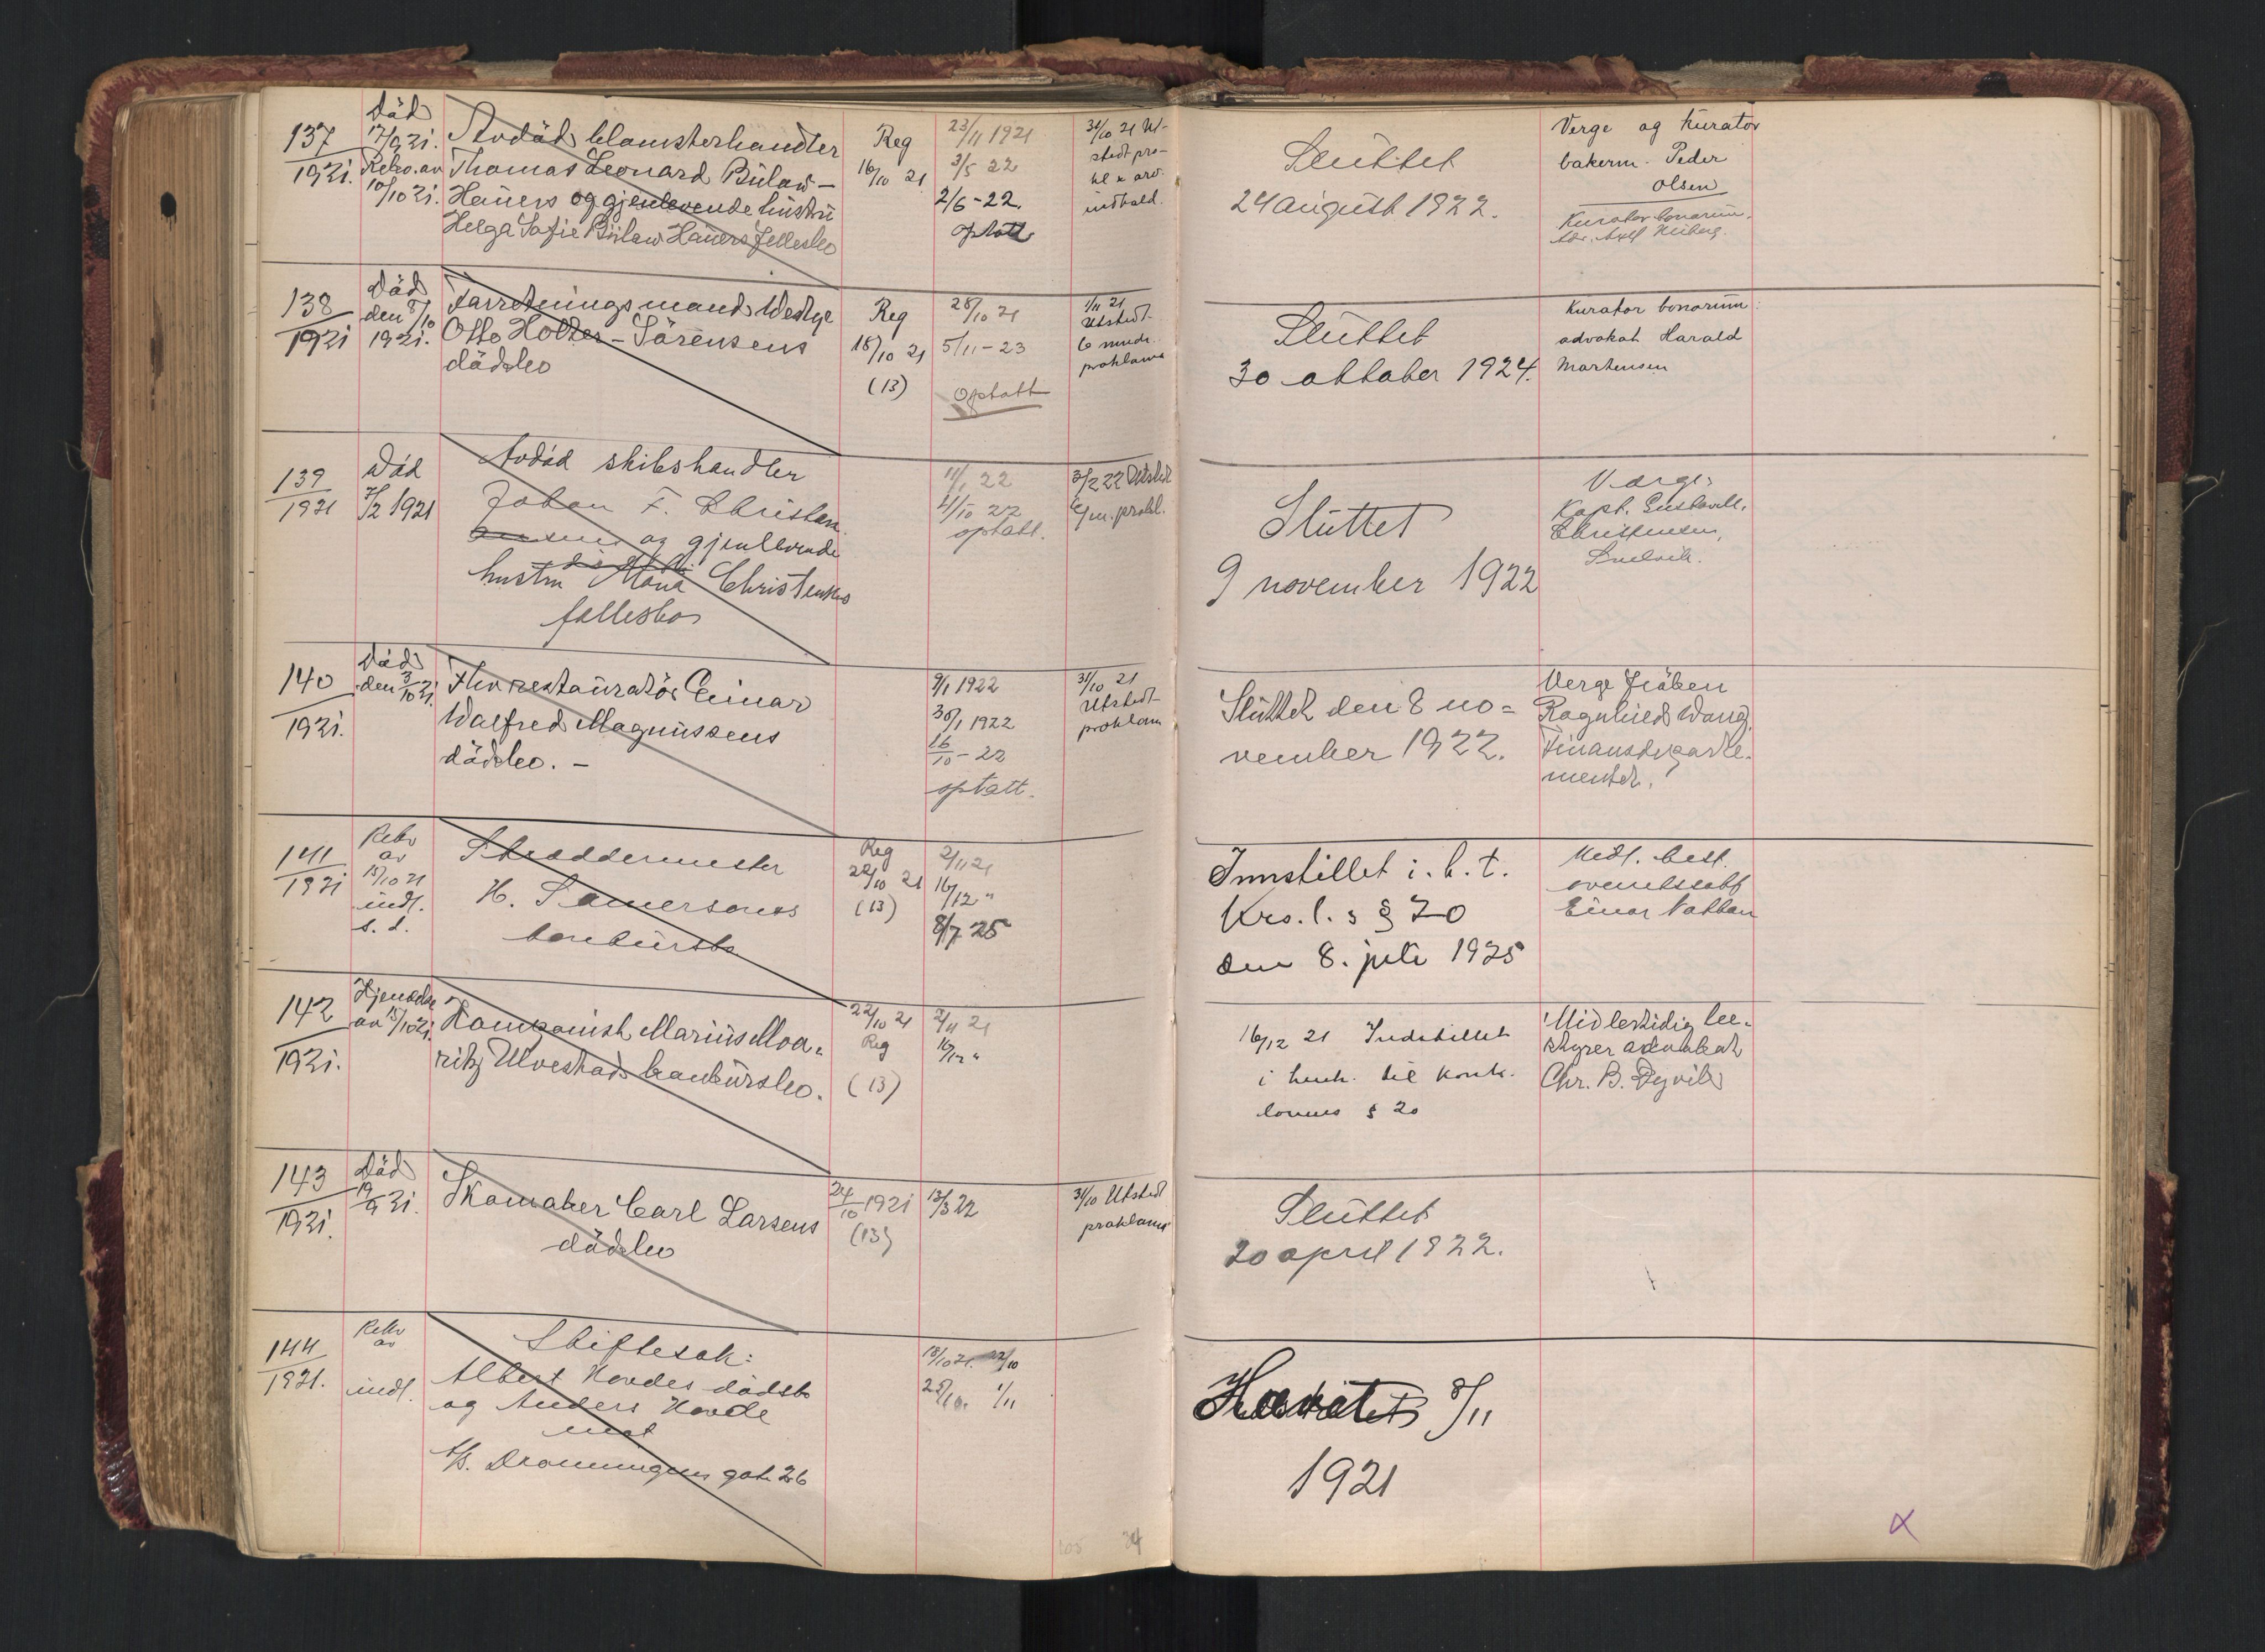 137
1921.
Död
17/9 21.
Rekv. av
10/10 21.
Avdöd blomsterhandler
Thomas Leonard Bülow-
Hauers og gjenlevende hustru
Helga Sofie Bülow Hauers fellesbo
Reg
16/10 21
23/11 1921
3/5 22
2/6-22.
optatt
31/10 21 Ut-
stedt pro-
kl x arv.
indkald.
Sluttet
24 august 1922.
Verge og kurator
bakerm. Peder
Olsen
Kurator bonorum.
138
1921
Död
den 5/10
1921.
Forretningsmand Wedege
Otto Holter-Sörensens
dödsbo
Reg
18/10 21
(13)
28/10 21
5/11-23
Optatt
1/11 21
Utstedt
6 mndr.
proklama
Sluttet
30 oktober 1924.
Kurator bonorum:
advokat Harald
Mortensen
139
1921
Död
7/2 1921
Avdöd skibshandler
Johan F. Christen
sen og gjenlevende
hustru Maria Christensens
fellesbo
11/1 22
4/10 22
optatt.
3/2 22 Utstedt
6 m. prokl.
Sluttet
9 november 1922
Verge:
Kapt. Gustav
Christensen,
140
1921.
Död
den 3/10 21.
Fhv restauratör Einar
Walfred Magnussens
dödsbo. -
9/1 1922
30/1 1922
16/10-22
optatt.
31/10 21
Utstedt
proklam
Sluttet den 8 no=
vember 1922.
Verge Fröken
Ragnhild Wang,
Finansdeparte-
mentet.
141
1921
Rekv
av
15/10 21
indl.
s. d.
Skreddermester
H. Samersons
konkursbo
Reg
22/10 21
(13)
2/11 21
16/12 "
8/7 25
Innstillet i. h. t.
Krs. l. s § 70
den 8. juli 1925
Midl. best.
overrettssakf
Einar Nathan
142
1921.
Kjendelse
av 15/10 21.
Komponist Marius Moa=
ritz Ulvestads konkursbo.
22/10 21
Reg
(13)
2/11 21
16/12 "
16/12 21 Indstillet
i henh. til konk.
lovens § 20
Midlertidig be-
styrer advokat
Chr. B. Dyvik
143
1921.
Död
19/9 21.
Skomaker Carl Larsens
dödsbo
24/10 1921
(13)
13/3 22
31/10 Utstedt
proklama
Sluttet
20 april 1922.
144
1921.
Rekv
av
indl.
Skiftesak:
Albert Hovdes dödsbo
og Anders Hovde
mot
A/S. Dronningens gate 26
18/10 21. 22/10
25/10. 1/11
Hævet 8/11
1921
105
34